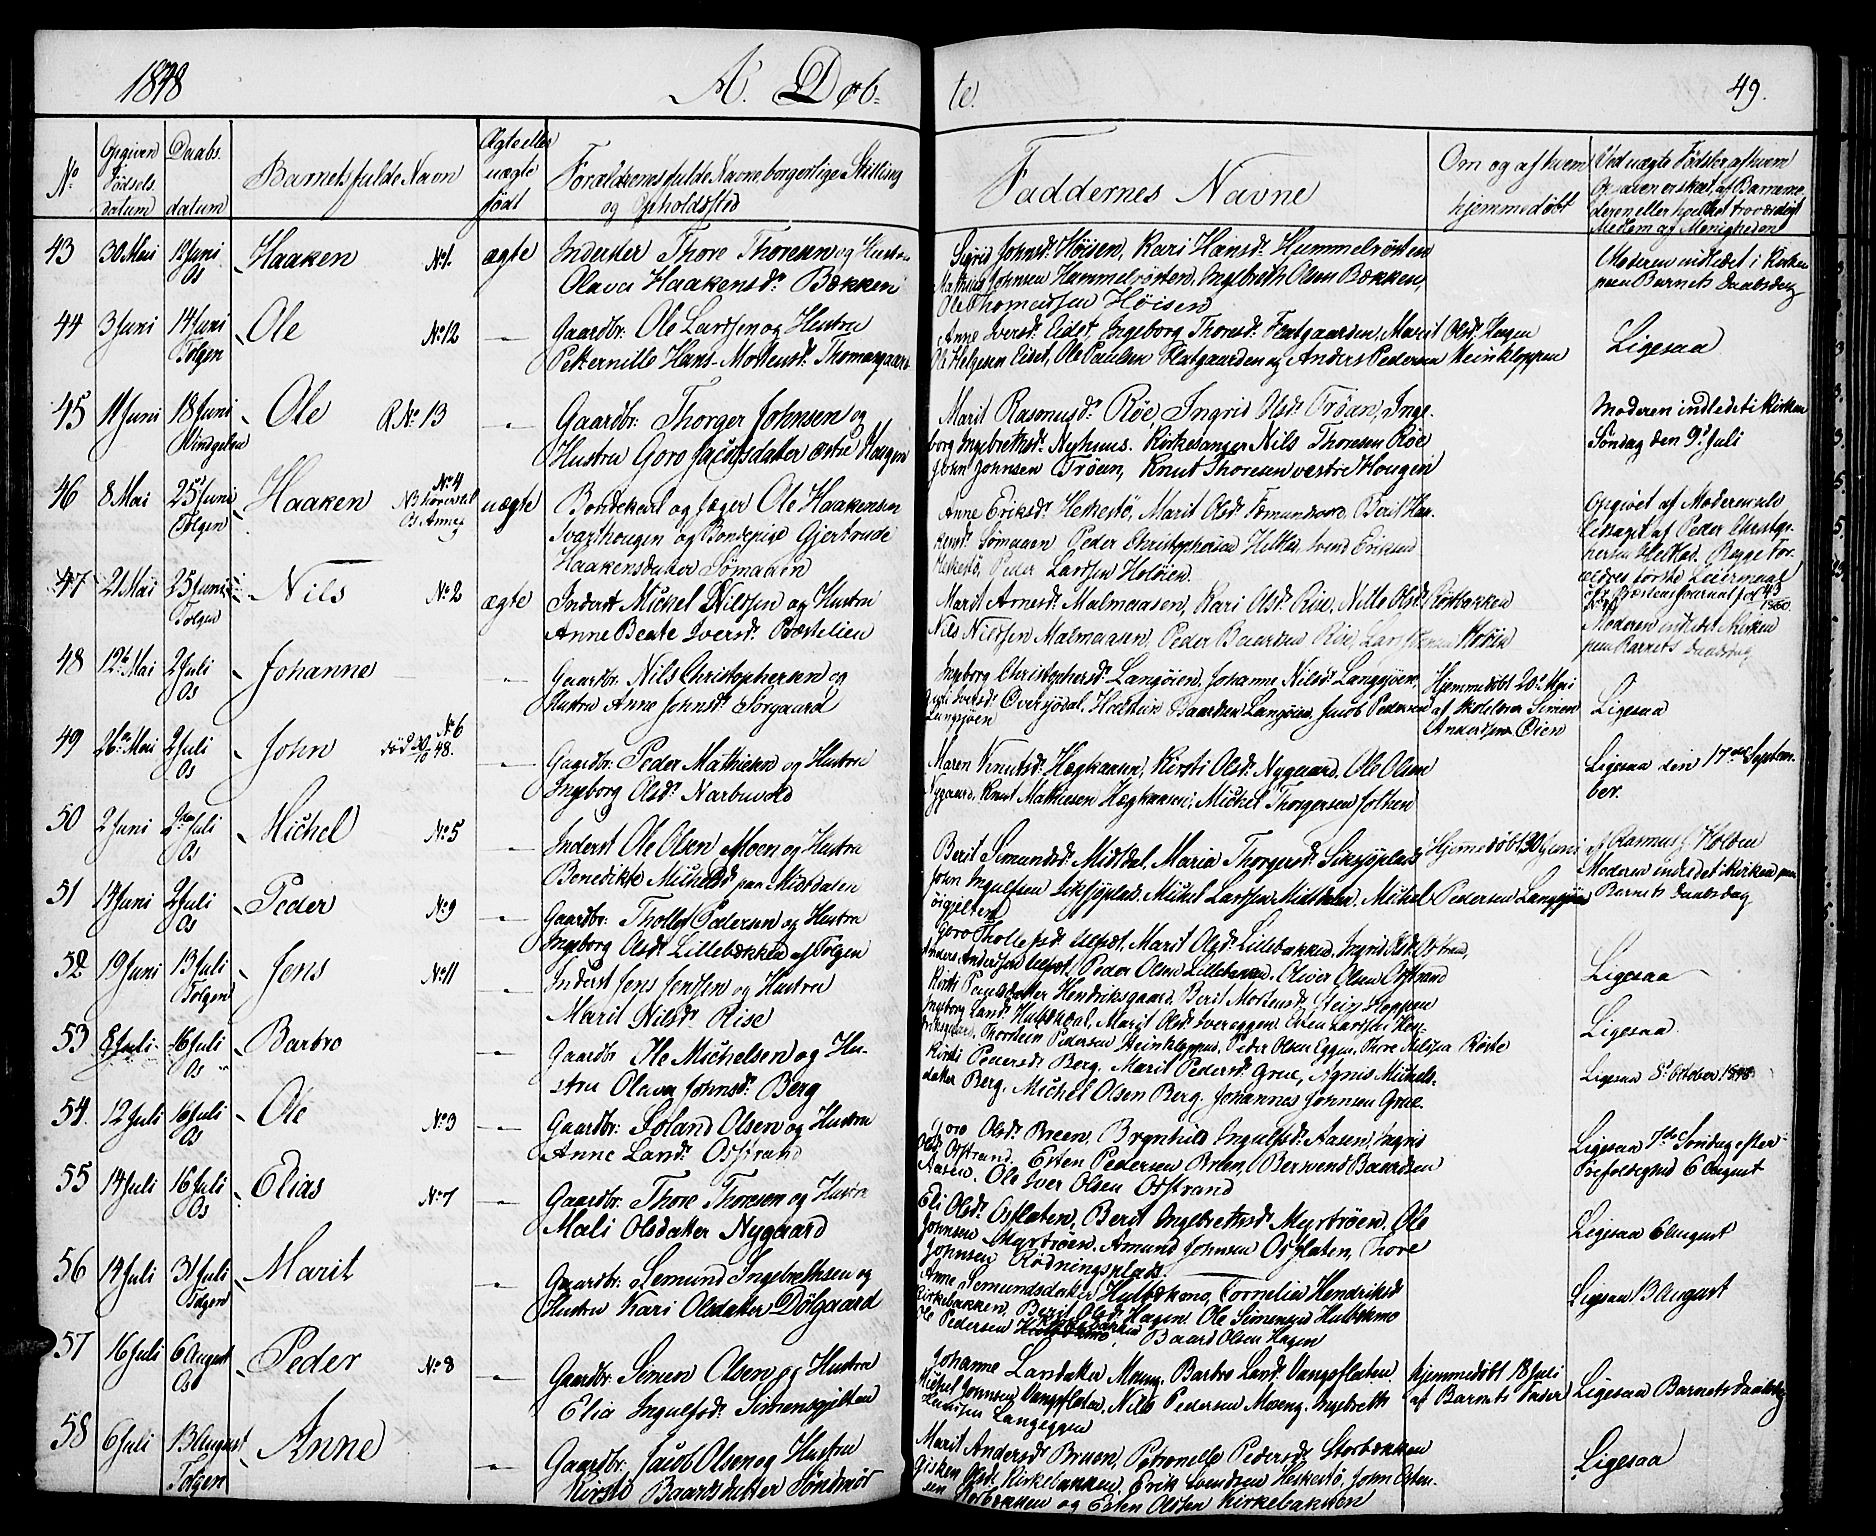 1848 A. Døb- te. 49.
No Opgiven Fødsels datum Daabs datum Barnets fulde Navn Ægte eller uægte født Forældrenes fulde Navne, borgerlige Stilling og Opholdssted Faddernes Navne Om og af hvem hjemmedøbt
43 30 Mai 12 Juni Os Haaken No 1. ægte Inderster Thore Thoresen og Hustru
Olava Haakensdr Bækken
Sigrid Johnsdr Høisen, Kari Hansdr Hummelrøsten
Mathias Johnsen Hummelrøsten, Ingebreth Olsen Bækken,
Ole Thomassen Høisen
Moderen indledet i Kirken
paa Barnets Daabsdag
44 3 Juni 14 Juni Tolgen Ole No 12 — Gaardbr. Ole Larssen og Hustru
Petternille Hans-Mortensdr Thomasgaard
Anne Iversdr Eidet, Ingeborg Thoresdr Flatgaarden, Marit Olsdr Hagen
Ole Helgesen Eidet, Ole Paulsen Flatgaarden og Anders Pedersen Steinkloppen
Ligesaa
45 11 Juni 18 Juni Vingelen Ole R No 13 — Gaardbr. Thorger Johnsen og
Hustru Goro Jacobsdatter østre Hougen
Marit Rasmusdr Røe, Ingrid Olsdr Trøan, Inge-
borg Ingebrethsdr Nyhuus, Kirkesanger Nils Thoresen Røe
John Johnsen Trøan, Knut Thoresen vestre Hougen
Moderen indledet i Kirken
Søndag den 9de Juli
46 8 Mai 25 Juni Tolgen Haaken No 4 uægte Bondekarl og Jæger Ole Haakensen
Svarthougen og Bondepige Gjertrude
Haakensdatter Sømaaen
Anne Eriksdr Heksestø, Marit Olsdr Femundsen, Berit Haa-
kensdr Sømaaen Peder Christophersen Hektad, Svend Eriksen
Heksestø, Peder Larssen Holøien.
Opgivet af Moderen selv
ledsaget af Peder Christop-
hersen Hektad. Begge For-
ældres første Leiermaal
47 21 Mai 25 Juni Tolgen Nils No 2 ægte Inderst Mickel Nilssen og Hustru
Anne Beate Iversdr Præstelien
Marit Arnesdr Malmaasen, Kari Olsdr Røe, Nille Olsdr Røstbakken
Nils Nilssen Malmaasen, Peder Baardsen Røe
Moderen indledet i Kirken
paa Barnets Daabsdag
48 12te Mai 2 Juli Os Johanne — Gaardbr. Nils Christophersen og
Hustru Anne Johnsdr Sørgaard
Ingeborg Christophersdr Langøien, Johanne Nilsdr Langsjøen,
Iversdr Oversjødal, Halsten Baardsen Langøien, Jacob Pedersen
Langsjøen
Hjemmedøbt 20de Mai
af Skolelærer Simen
Anderssen Øien
Ligesaa
49 26de Mai 2 Juli Os John No 6 død 20/10 48. — Gaardbr. Peder Mathiesen og Hustru
Ingeborg Olsdr Narbuvold
Maren Knutsdr Hæghaasen, Kirsti Olsdr Nygaard, Ole Olsen
Nygaard, Knut Mathiesen Hæghaasen, Mickel Thorgersen Jotten
Ligesaa den 17de Septem-
ber.
50 2 Juni 2den Juli Os Mickel No 5 — Inderst Ole Olsen Moen og Hustru
Benedikte Mickelsdr paa Midtdalen
Berit Simundsdr Midtdal, Maria Thorgersdr Siksjøplads
John Ingulfsen Siksjøplads, Mickel Larssen Midtdalen, Mickel Pedersen Langsjøen
Hjemmedøbt 30 Juni af Rasmus J Holden
Moderen indledet i Kirken paa
Barnets Daabsdag
51 14 Juni 2 Juli Os Peder No 9 — Gaardbr. Thollef Pedersen og Hustru
Ingeborg Olsdr Lillebækken af Tolgen
Goro Thollefsdr Ulset, Marit Olsdr Lillebækken, Ingrid Olsdr Østrand,
Anders Anderssen Ulset, Peder Olsen Lillebækken, Oliver Olsen Osstrand
Ligesaa
52 19 Juni 13 Juli Tolgen Jens No 11 — Inderst Jens Jenssen og Hustru
Marit Nilsdr Rise
Kirsti Paulsdatter Hendriksgaard, Berit Mortensdr Steinkloppen
Ligesaa
53 8 Juli 16 Juli Os Barbro — Gaardbr. Ole Mickelsen og Hu-
stru Olava Johnsdr Berg
Kirsti Pedersdr Berg, Marit Pedersdr Grue, Agnis Mickels-
datter Berg, Mickel Olsen Berg, Johannes Johnsen Grue.
Ligesaa 8de Oktober 1848
54. 12 Juli 16 Juli Os Ole No 3 — Gaardbr. Erland Olsen og Hustru
Anne Larsdr Osstrand
Goro Olsdr Breen, Brynhild Ingulfsdr Aasen, Ingrid
Olsdr Osstrand, Esten Pedersen Breen, Bersvend Baardsen
Aasen, Ole Iver Olsen Osstrand
Ligesaa 7de Søndag efter
Trefoldighed 6 August
55 14 Juli 16 Juli Os Elias No 7 — Gaardbr. Thore Thoresen og Hustru
Mali Olsdatter Nygaard
Eli Olsdr Osflaten, Berit Ingebrethsdr Myrtrøen, Ole
Johnsen Myrtrøen, Amund Johnsen Osflaten, Thore
Johnsen Rødningsplads.
Ligesaa 6 August
56 14 Juli 31 Juli Tolgen Marit — Gaardbr. Semund Ingebrethsen og
Hustru Kari Olsdatter Dølgaard
Anne Semundsdatter Hulbækmo, Cornelia Hendriksdr
Kirkebakken, Berit Olsdr Hagen, Ole Simensen Hulbækmo
Ole Pedersen Kirkebakken, Baard Olsen Hagen
Ligesaa 13 August
57 16 Juli 6 August Os Peder No 8 — Gaardbr. Simen Olsen og Hustru
Elia Ingulfsdr Simensgjelten
Johanne Larsdatter Moseng, Barbro Larsdr Vangsflaten,
Mickel Johnsen Vangsflaten, Nils Pedersen Moseng, Ingebreth
Hanssen Langeggen
Hjemmedøbt 18 Juli
af Barnets Fader
Ligesaa Barnets Daabsdag
58 6 Juli 13 August Tolgen Anne — Gaardbr. Jacob Olsen og Hustru
Kirsti Baardsdatter Søndmør
Marit Andersdr Bruen, Petronelle Pedersdr Storbækken
Gisken Olsdr Kirkebakken, Erik Svendsen Heksestø, John Esten-
sen Storbækken og Esten Olsen Kirkebakken
Ligesaa